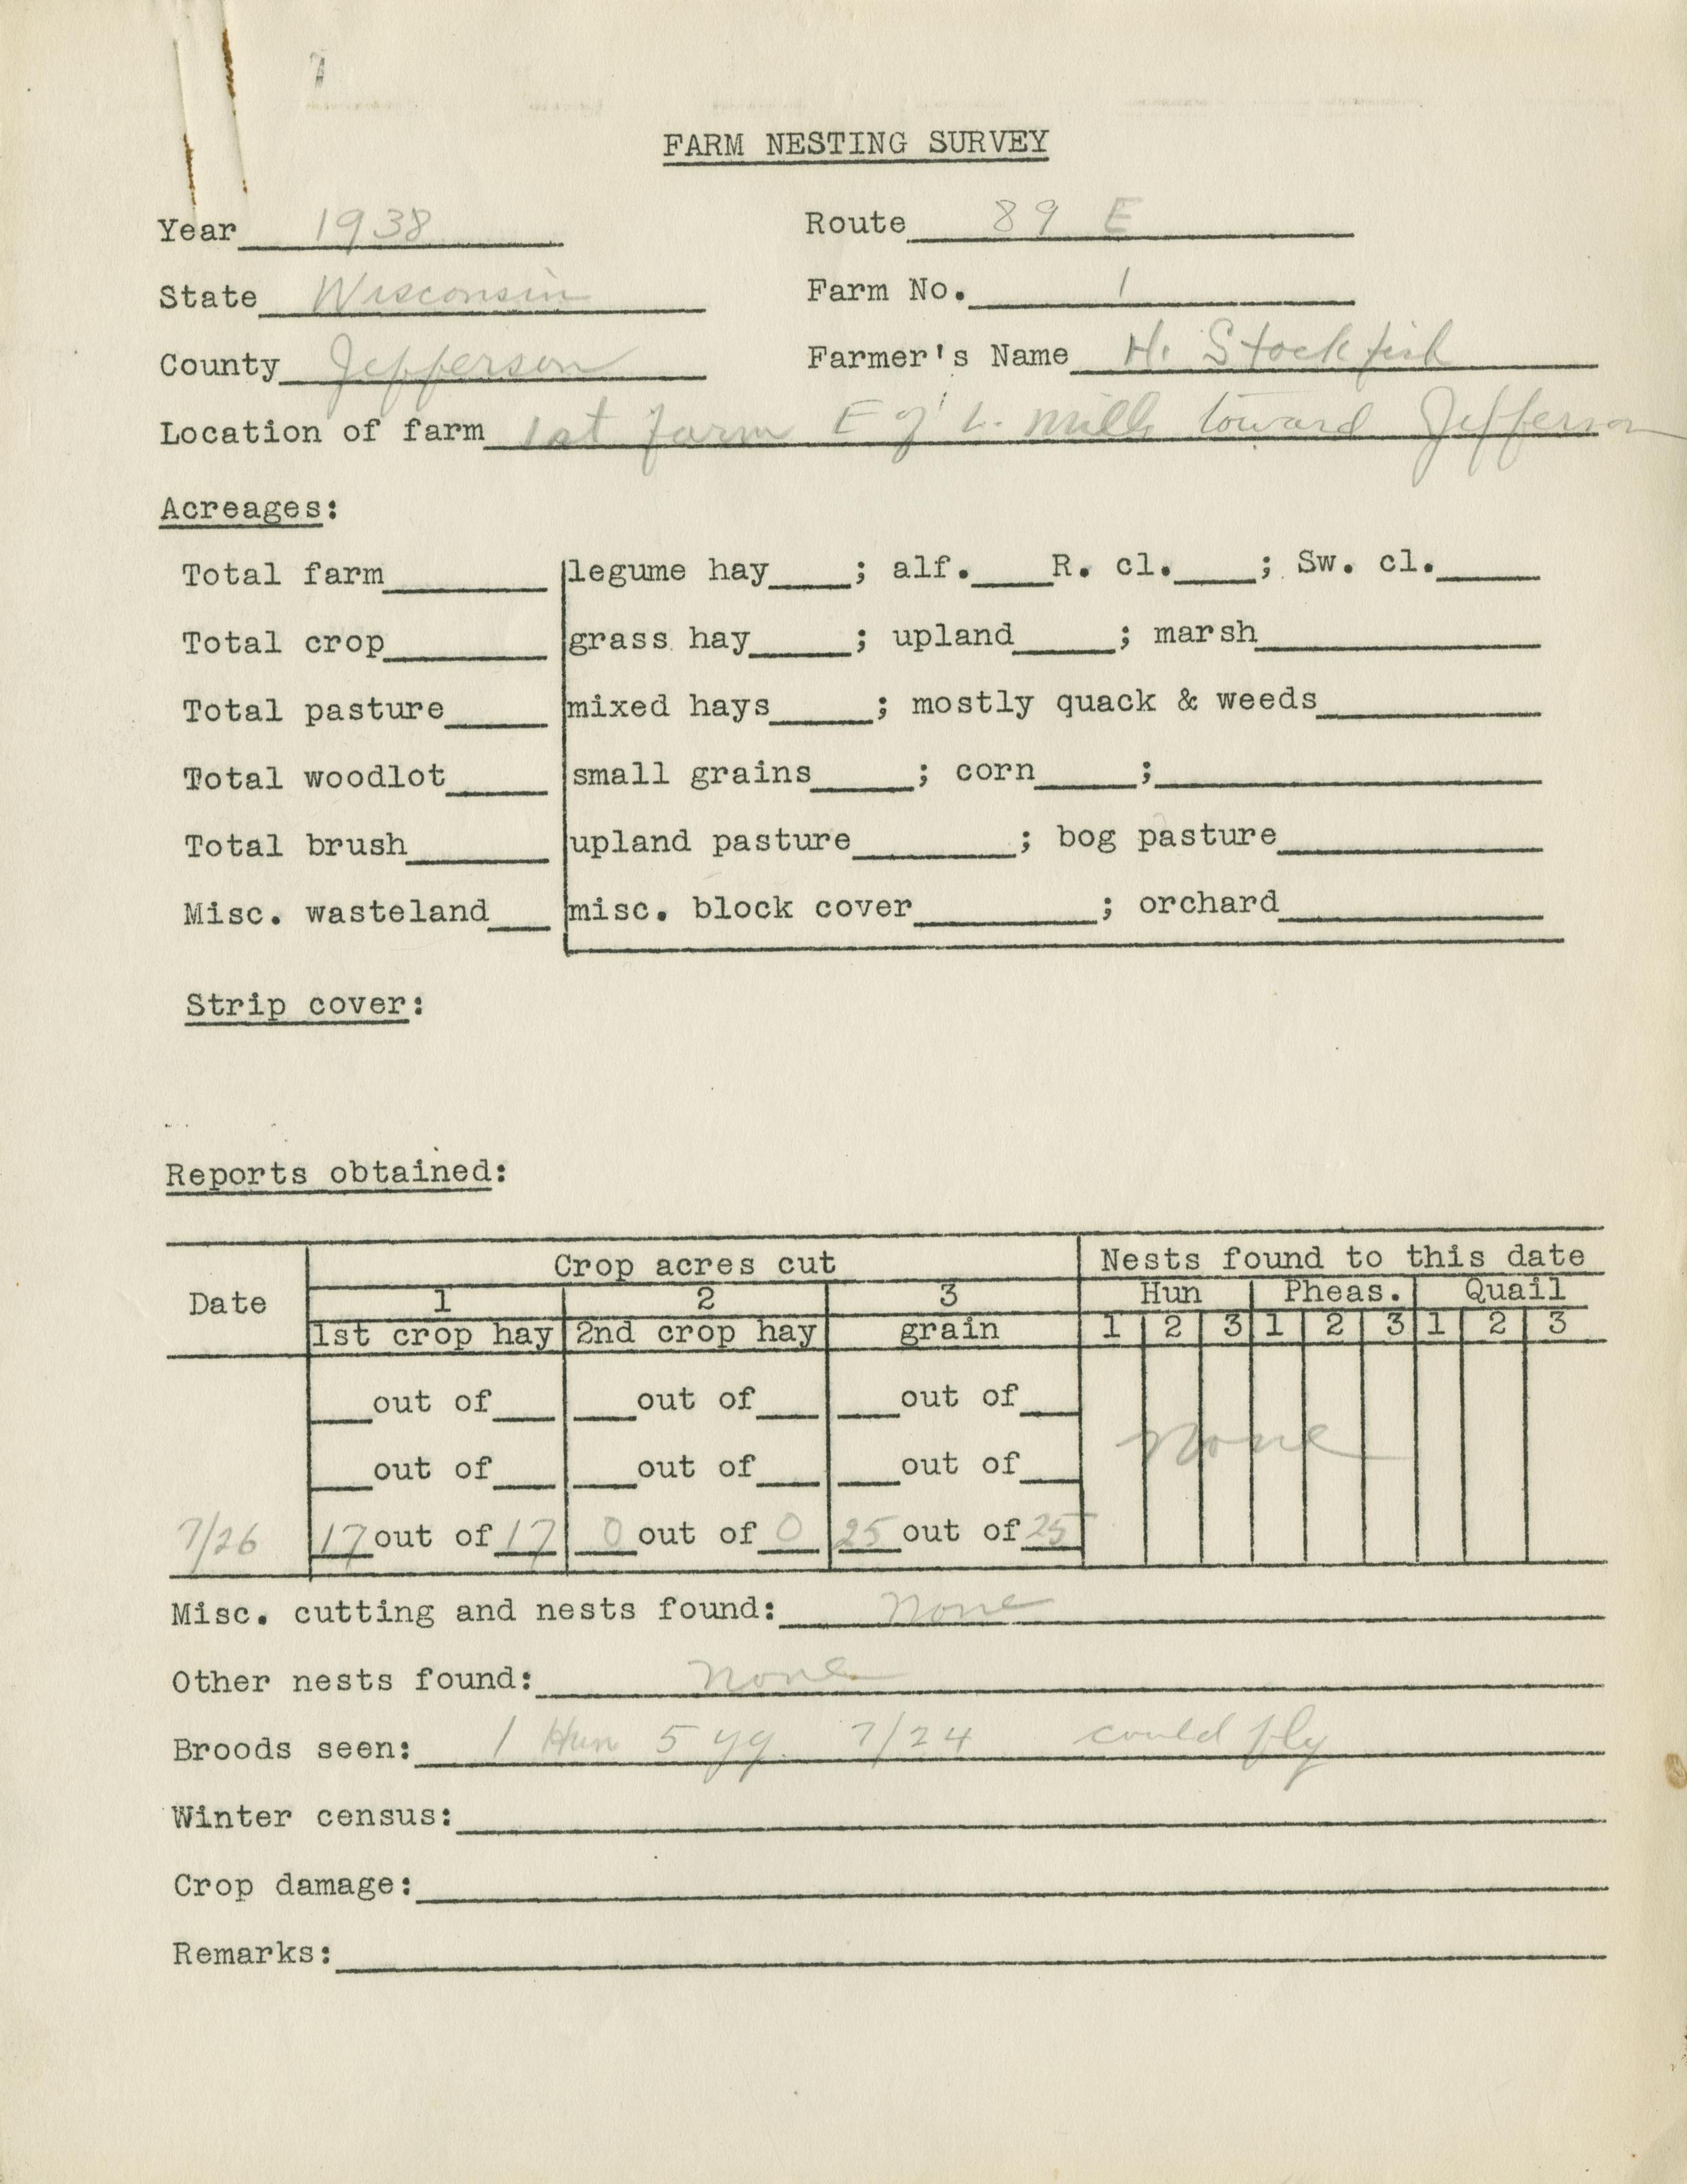 FARM NESTING SURVEY
Year 1938 Route 89 E
State Wisconsin Farm No. 1
County Jefferson Farmer's Name H. Stockfish
Location of farm 1st farm E of L. Mills toward Jefferson
Acreages:
Total farm____ legume hay____; alf.____R. cl.____; Sw. cl.____
Total crop____ grass hay____; upland____; marsh____
Total pasture____ mixed hays____; mostly quack & weeds____
Total woodlot____ small grains____; corn____;____
Total brush____ upland pasture____; bog pasture____
Misc. wasteland____ misc. block cover____; orchard____
Strip cover:
Reports obtained:
Crop acres cut Nests found to this date
Date 1 2 3 Hun Pheas. Quail
1st crop hay 2nd crop hay grain 1 2 3 1 2 3 1 2 3
___out of___ ___out of___ ___out of___
none
___out of___ ___out of___ ___out of___
7/26 17 out of 17 0 out of 0 25 out of 25
Misc. cutting and nests found: none
Other nests found: none
Broods seen: 1 Hun 5 yg. 7/24 could fly
Winter census:
Crop damage:
Remarks: